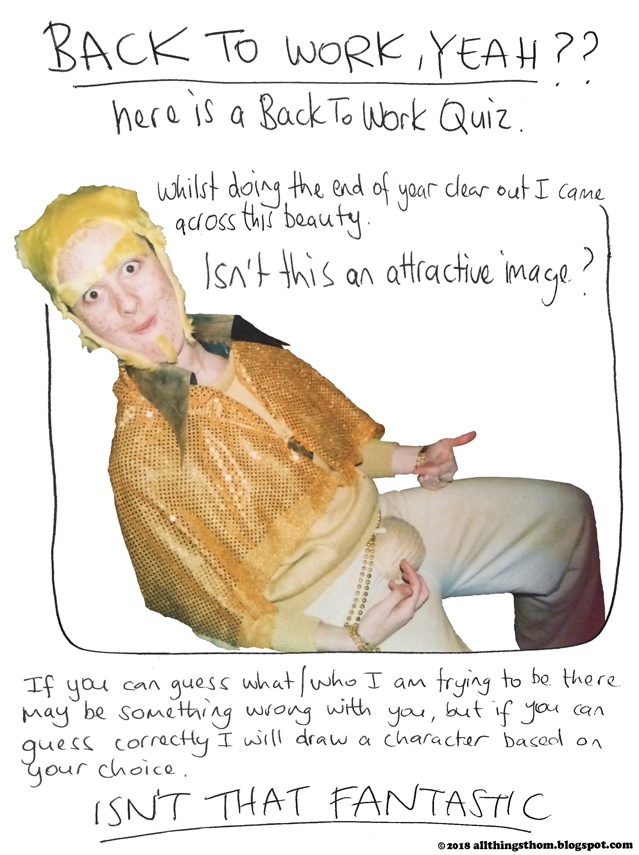 BACK TO WORK, YEAH??
here is a Back To Work Quiz.
Whilst doing the end of year clear out I came
across this beauty.
Isn't this an attractive image?
If you can guess what/who I am trying to be there
may be something wrong with you, but if you can
guess correctly I will draw a character based on
your choice.
ISN'T THAT FANTASTIC
© 2018 allthingsthom.blogspot.com